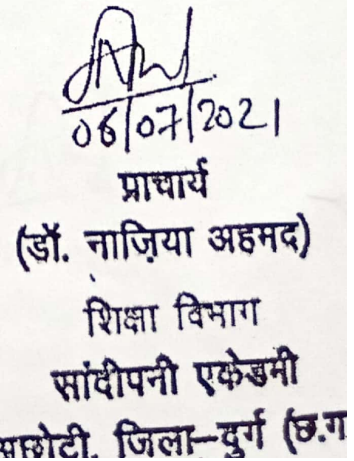 06/07/2021
प्राचार्य
(डॉ. नाज़िया अहमद)
शिक्षा विभाग
सांदीपनी एकेडमी
अछोटी, जिला-दुर्ग (छ.ग